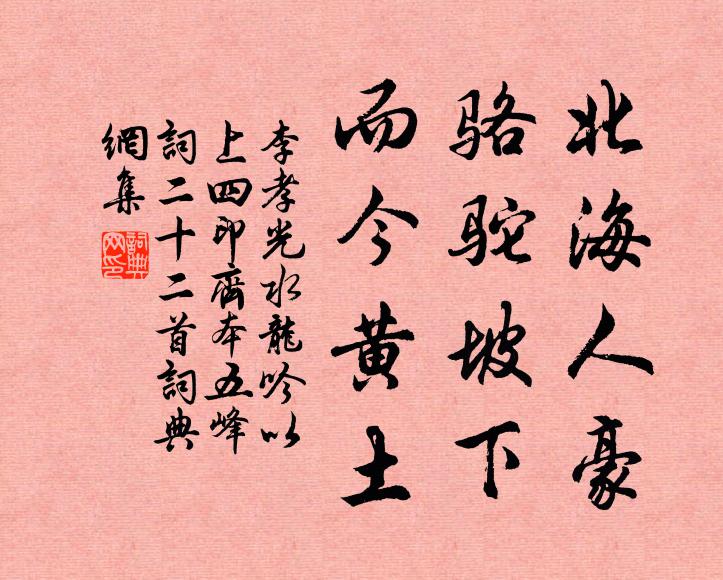 北海人豪
骆驼坡下
而今黄土
李孝光水龍吟以
上四印齋本五峰
詞二十二首詞典
網集
詞典
网印